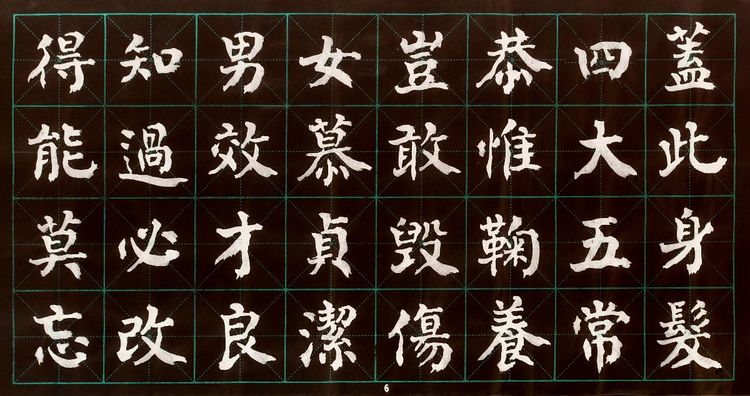 蓋此身髮
四大五常
恭惟鞠養
豈敢毀傷
女慕貞潔
男效才良
知過必改
得能莫忘
6